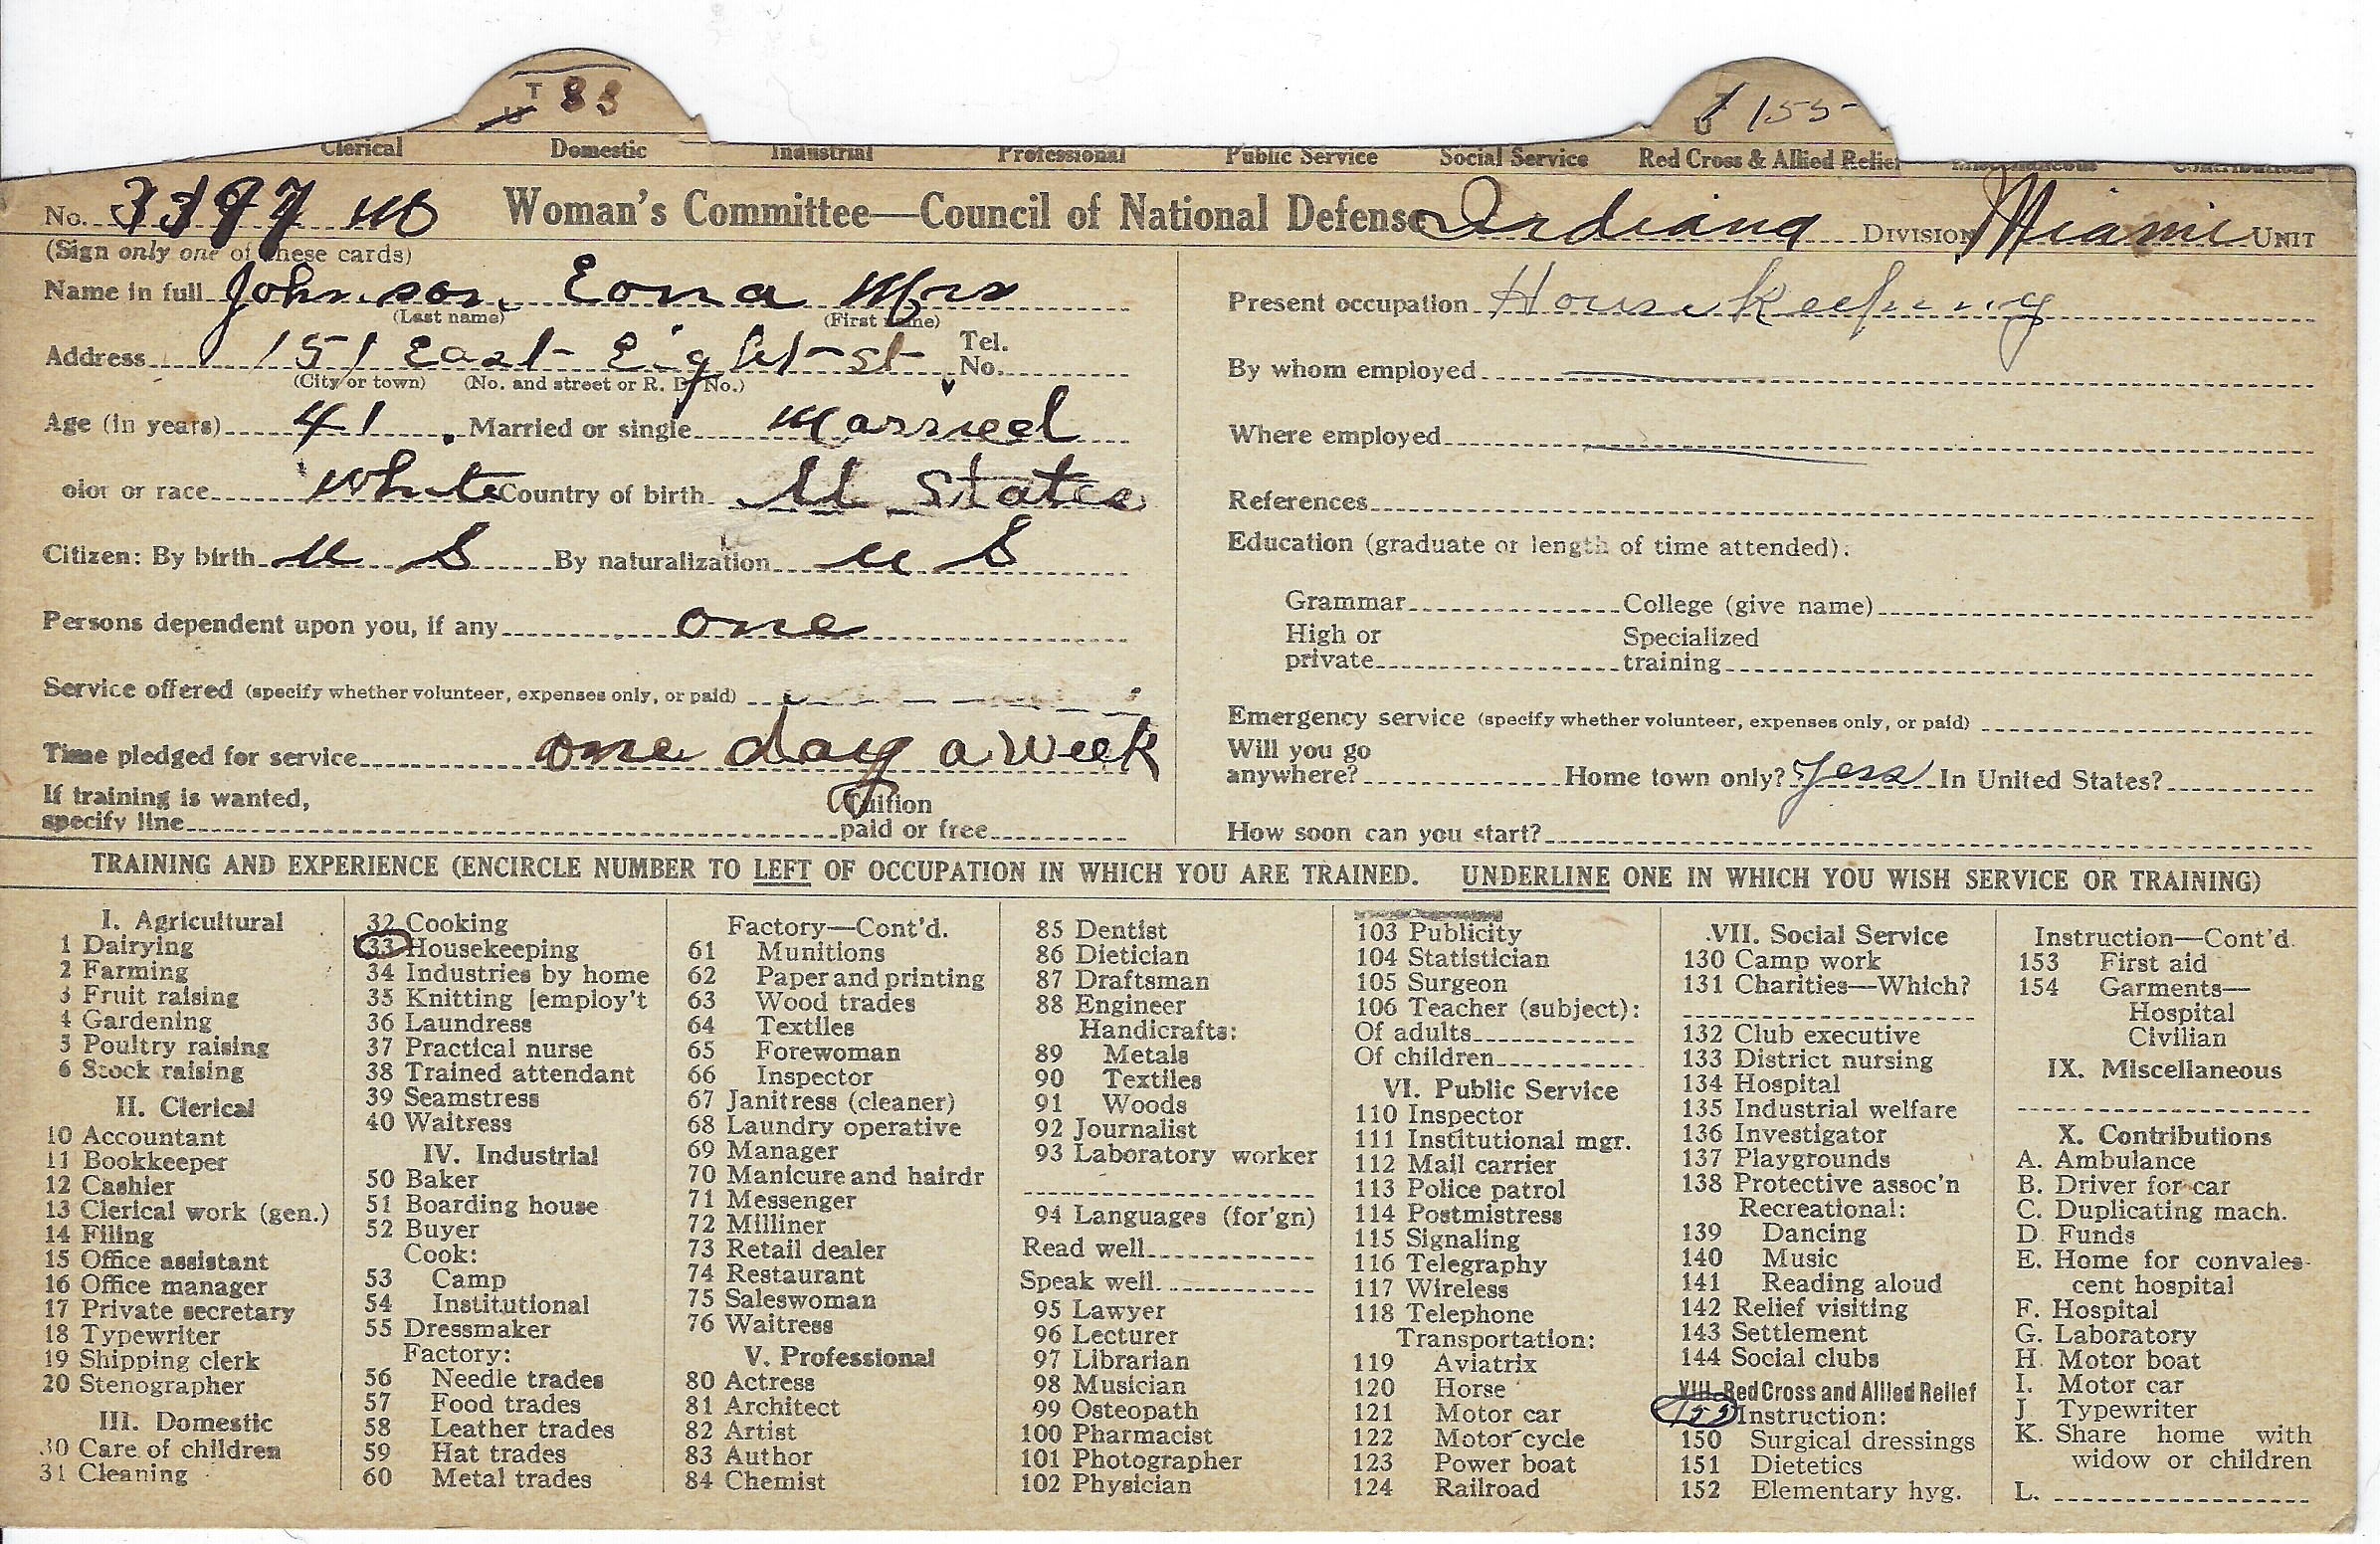 T 33
U 155
Clerical Domestic Industrial Professional Public Service Social Service Red Cross & Allied Relief Miscellaneous Contributions
No. 3397 M Woman's Committee—Council of National Defense Indiana DIVISION Miami UNIT
(Sign only one of these cards)
Name in full Johnson Eona Mrs
(Last name) (First name)
Address 151 East Eight st Tel. No.
(City or town) (No. and street or R. D. No.)
Age (in years) 41 Married or single Married
olor or race White Country of birth U States
Citizen: By birth U S By naturalization U S
Persons dependent upon you, if any one
Service offered (specify whether volunteer, expenses only, or paid)
Time pledged for service one day a week
If training is wanted,
specify line Tuition paid or free
Present occupation Housekeeping
By whom employed
Where employed
References
Education (graduate or length of time attended):
Grammar College (give name)
High or private Specialized training
Emergency service (specify whether volunteer, expenses only, or paid)
Will you go
anywhere? Home town only? yess In United States?
How soon can you start?
TRAINING AND EXPERIENCE (ENCIRCLE NUMBER TO LEFT OF OCCUPATION IN WHICH YOU ARE TRAINED. UNDERLINE ONE IN WHICH YOU WISH SERVICE OR TRAINING)
I. Agricultural
1 Dairying
2 Farming
3 Fruit raising
4 Gardening
5 Poultry raising
6 Stock raising
II. Clerical
10 Accountant
11 Bookkeeper
12 Cashier
13 Clerical work (gen.)
14 Filing
15 Office assistant
16 Office manager
17 Private secretary
18 Typewriter
19 Shipping clerk
20 Stenographer
III. Domestic
30 Care of children
31 Cleaning
32 Cooking
33 Housekeeping
34 Industries by home
35 Knitting [employ't
36 Laundress
37 Practical nurse
38 Trained attendant
39 Seamstress
40 Waitress
IV. Industrial
50 Baker
51 Boarding house
52 Buyer
Cook:
53 Camp
54 Institutional
55 Dressmaker
Factory:
56 Needle trades
57 Food trades
58 Leather trades
59 Hat trades
60 Metal trades
Factory—Cont'd.
61 Munitions
62 Paper and printing
63 Wood trades
64 Textiles
65 Forewoman
66 Inspector
67 Janitress (cleaner)
68 Laundry operative
69 Manager
70 Manicure and hairdr
71 Messenger
72 Milliner
73 Retail dealer
74 Restaurant
75 Saleswoman
76 Waitress
V. Professional
80 Actress
81 Architect
82 Artist
83 Author
84 Chemist
85 Dentist
86 Dietician
87 Draftsman
88 Engineer
Handicrafts:
89 Metals
90 Textiles
91 Woods
92 Journalist
93 Laboratory worker
94 Languages (for'gn)
Read well
Speak well
95 Lawyer
96 Lecturer
97 Librarian
98 Musician
99 Osteopath
100 Pharmacist
101 Photographer
102 Physician
103 Publicity
104 Statistician
105 Surgeon
106 Teacher (subject):
Of adults
Of children
VI. Public Service
110 Inspector
111 Institutional mgr.
112 Mail carrier
113 Police patrol
114 Postmistress
115 Signaling
116 Telegraphy
117 Wireless
118 Telephone
Transportation:
119 Aviatrix
120 Horse
121 Motor car
122 Motor cycle
123 Power boat
124 Railroad
VII. Social Service
130 Camp work
131 Charities—Which?
132 Club executive
133 District nursing
134 Hospital
135 Industrial welfare
136 Investigator
137 Playgrounds
138 Protective assoc'n
Recreational:
139 Dancing
140 Music
141 Reading aloud
142 Relief visiting
143 Settlement
144 Social clubs
VIII. Red Cross and Allied Relief
155 Instruction:
150 Surgical dressings
151 Dietetics
152 Elementary hyg.
Instruction—Cont'd.
153 First aid
154 Garments—
Hospital
Civilian
IX. Miscellaneous
X. Contributions
A. Ambulance
B. Driver for car
C. Duplicating mach.
D Funds
E. Home for convales-
cent hospital
F. Hospital
G. Laboratory
H. Motor boat
I. Motor car
J Typewriter
K. Share home with
widow or children
L.